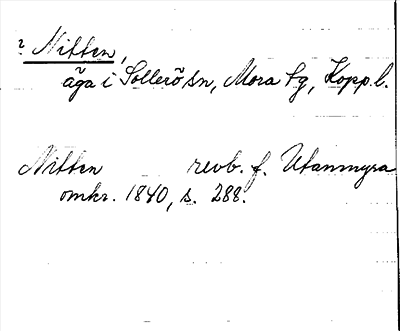 ? Nitten,
äga i Sollerö sn, Mora tg, Kopp.l.
Nitten revb. f. Utanmyra
omkr. 1840, s. 288.